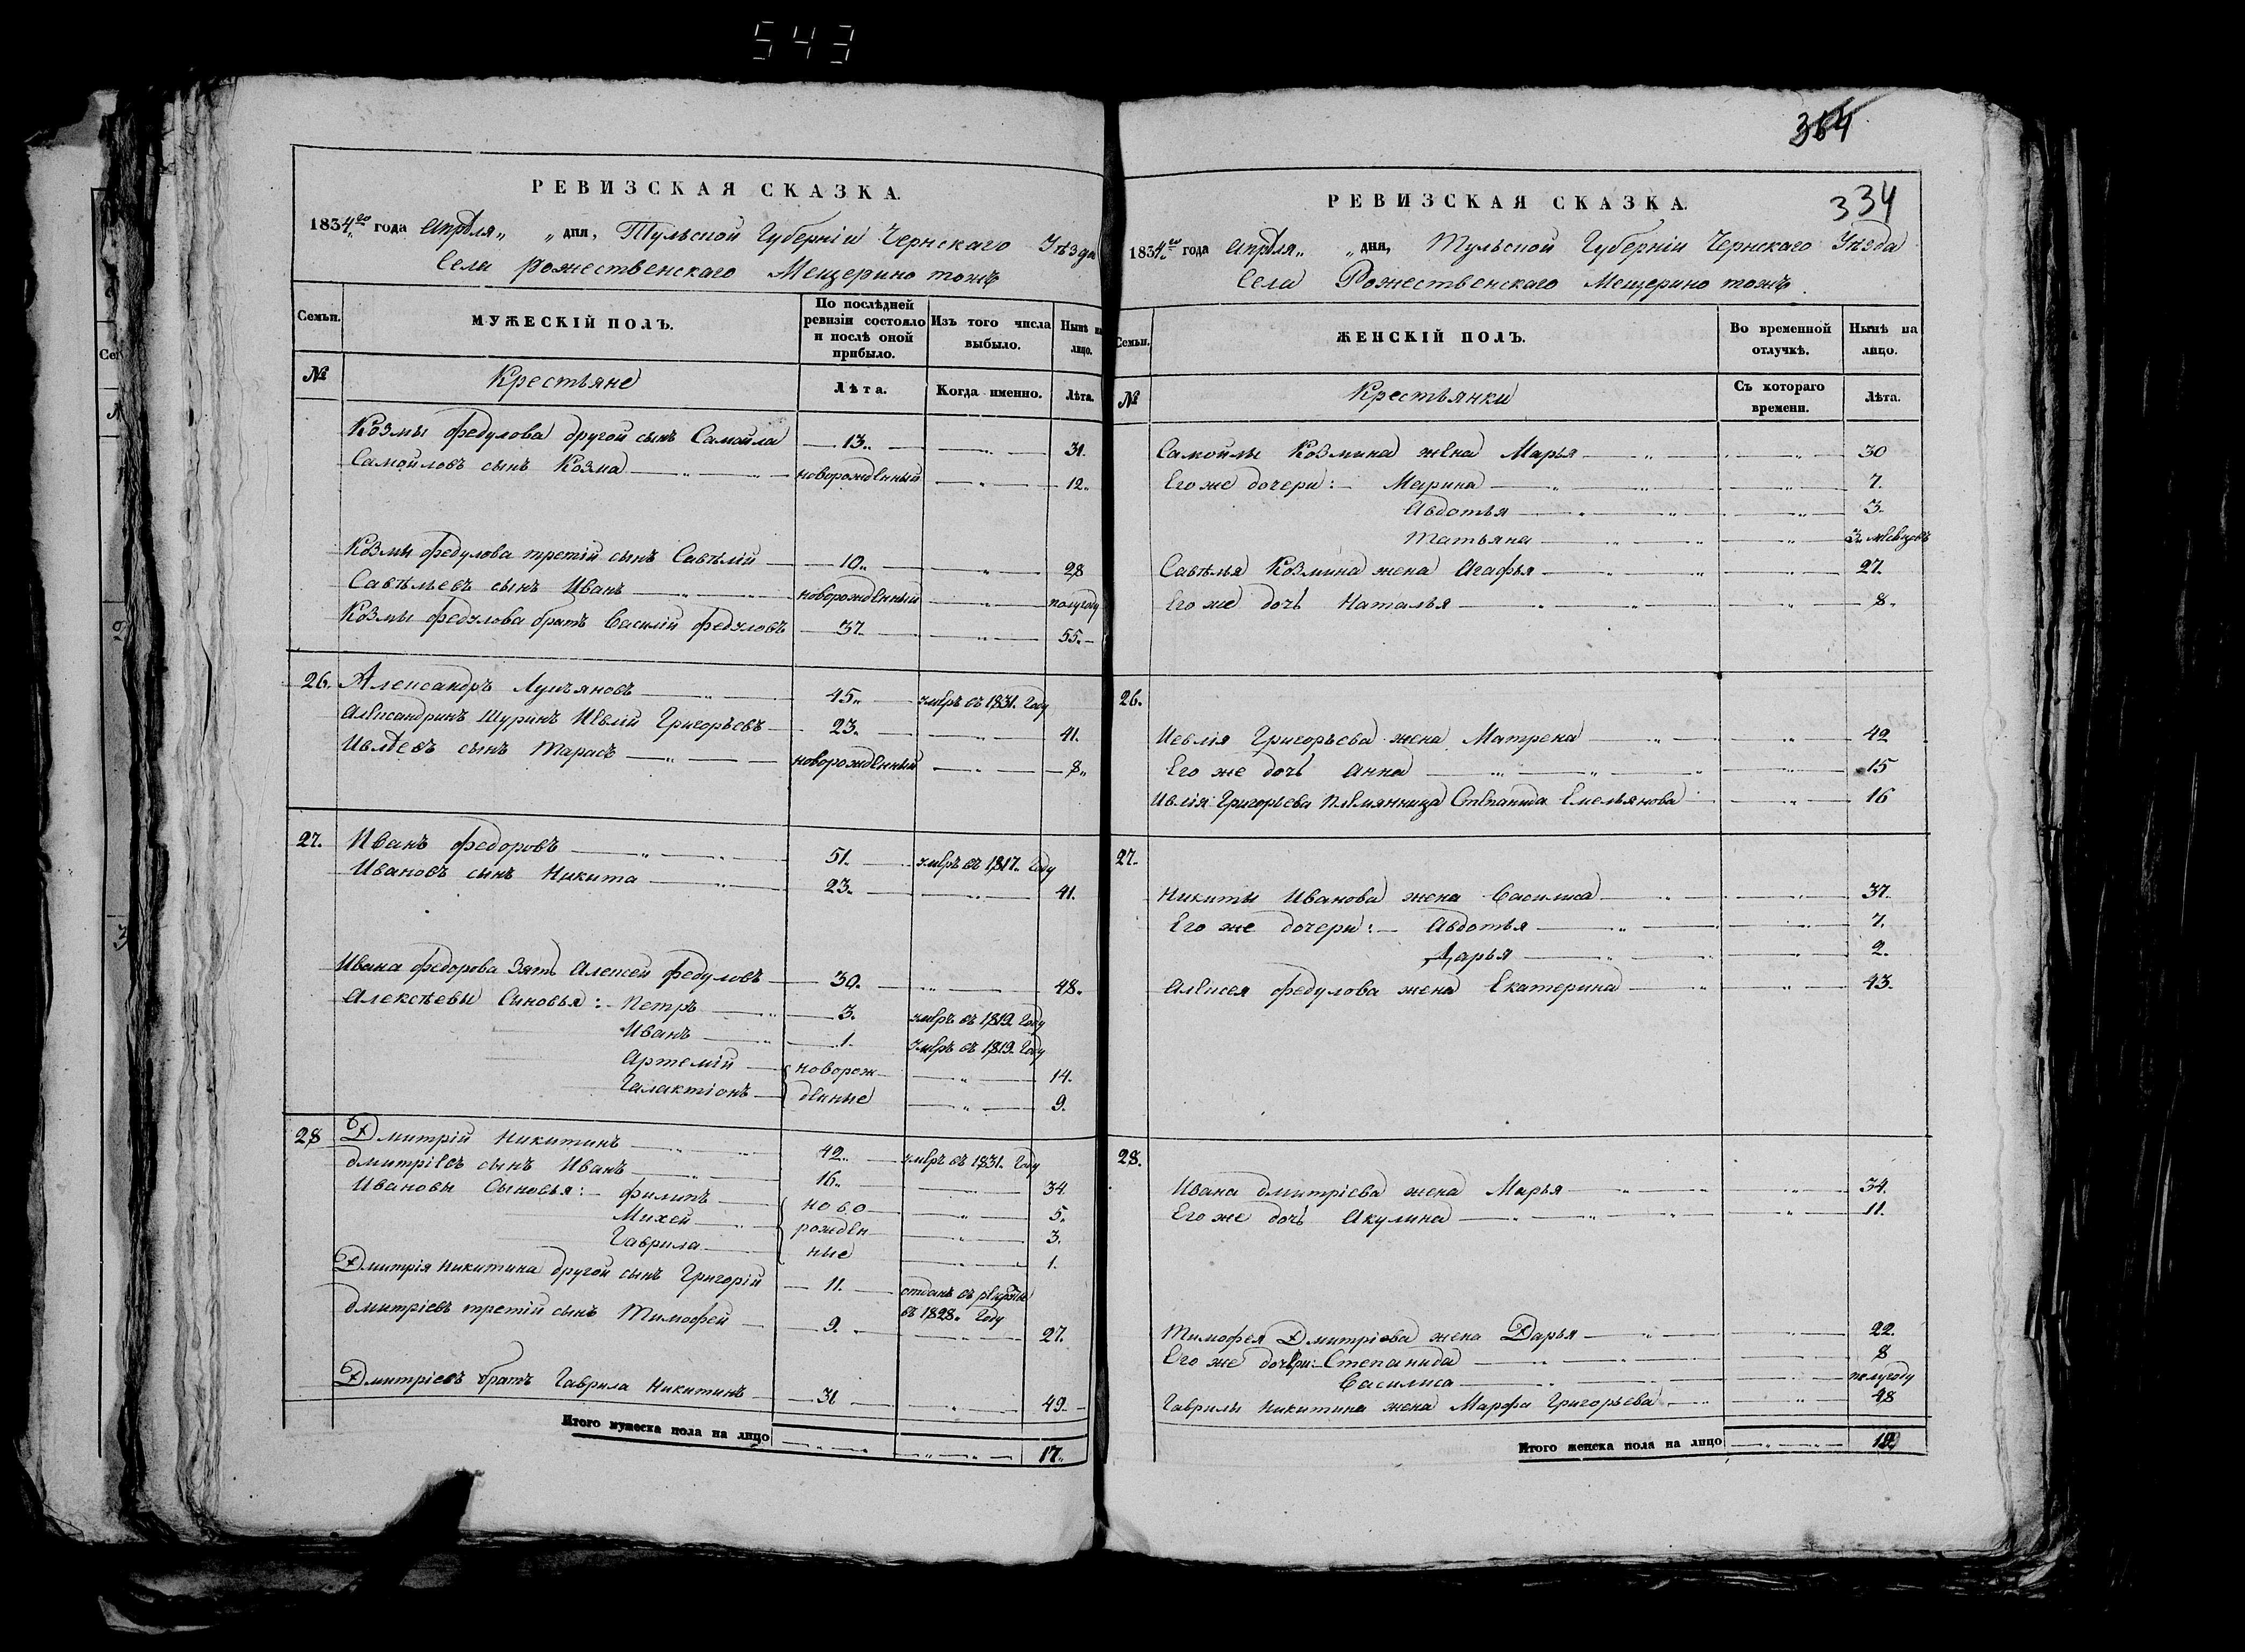 543
РЕВИЗСКАЯ СКАЗКА.
1834го года Апреля „ „ дня, Тульской Губернiи Чернскаго Уѣзда
Села Рожественскаго Мещерино тожъ
Семьи.
МУЖЕСКIЙ ПОЛЪ.
По послѣдней ревизiи состояло и послѣ оной прибыло.
Изъ того числа выбыло.
Нынѣ на лицо.
№
Крестьяне
Лѣта.
Когда именно.
Лѣта.
Козмы Федулова другой сынъ Самойла 13. „ 31.
Самойловъ сынъ Козма „ „ новорожденный „ 12.
Козмы Федулова третiй сынъ Савѣлiй 10. „ 28
Савѣльевъ сынъ Иванъ „ „ новорожденный „ полугоду
Козмы Федулова братъ Василiй Федуловъ 37. „ 55.
26. Александръ Лукъяновъ „ 45. умеръ въ 1831. Году
Александринъ Шуринъ Ивлiй Григорьевъ 23. „ 41.
Ивлѣевъ сынъ Тарасъ „ новорожденный „ 8.
27. Иванъ Федоровъ „ „ 51. умеръ въ 1817. Году
Ивановъ сынъ Никита „ „ 23. „ 41.
Ивана Федорова Зять Алексей Федуловъ 30. „ 48.
Алексѣевы Сыновья: Петръ „ 3. умеръ въ 1819 Году
Иванъ „ 1. умеръ въ 1819. Году
Артемiй новорож „ 14.
Галактiонъ денные „ 9.
28 Дмитрiй Никитинъ „ „ 42. умеръ въ 1831. Году
Дмитрiевъ сынъ Иванъ „ 16. „ 34.
Ивановы Сыновья: Филипъ ново „ 5.
Михей рожден „ 3.
Гаврила ные „ 1.
Дмитрiя Никитина другой сынъ Григорiй 11. отданъ въ рекруты
въ 1828. Году
Дмитрiевъ третiй сынъ Тимофей 9. „ 27.
Дмитрiевъ братъ Гаврила Никитинъ 31 „ 49.
Итого мужеска пола на лицо „ „ „ 17.
334
РЕВИЗСКАЯ СКАЗКА.
1834го года Апреля „ „ дня, Тульской Губернiи Чернскаго Уѣзда
Села Рожественскаго Мещерино тожъ.
Семьи.
ЖЕНСКIЙ ПОЛЪ.
Во временной отлучкѣ.
Нынѣ на лицо.
№
Крестьянки
Съ котораго времени.
Лѣта.
Самойлы Козмина жена Марья „ „ 30
Его же дочери: Марина „ „ „ 7.
Авдотья „ „ „ 3.
Татьяна „ „ „ 3. месецовъ
Савѣлья Козмина жена Агафья „ „ „ 27.
Его же дочь Наталья „ „ „ 8.
26.
Ивлiя Григорьева жена Матрена „ „ 42
Его же дочь Анна „ „ „ 15
Ивлiя Григорьева племянница Степанида Емельянова „ 16
27.
Никиты Иванова жена Василиса „ „ 37.
Его же дочери: Авдотья „ „ 7.
Дарья „ „ 2.
Алексея Федулова жена Екатерина „ „ 43.
28.
Ивана Дмитрiева жена Марья „ „ „ 34.
Его же дочь Акулина „ „ „ 11.
Тимофея Дмитрiева жена Дарья „ „ 22.
Его же дочери: Степанида „ „ 8
Василиса „ „ полугоду
Гаврилы Никитина жена Марфа Григорьева „ „ 48
Итого женска пола на лицо „ „